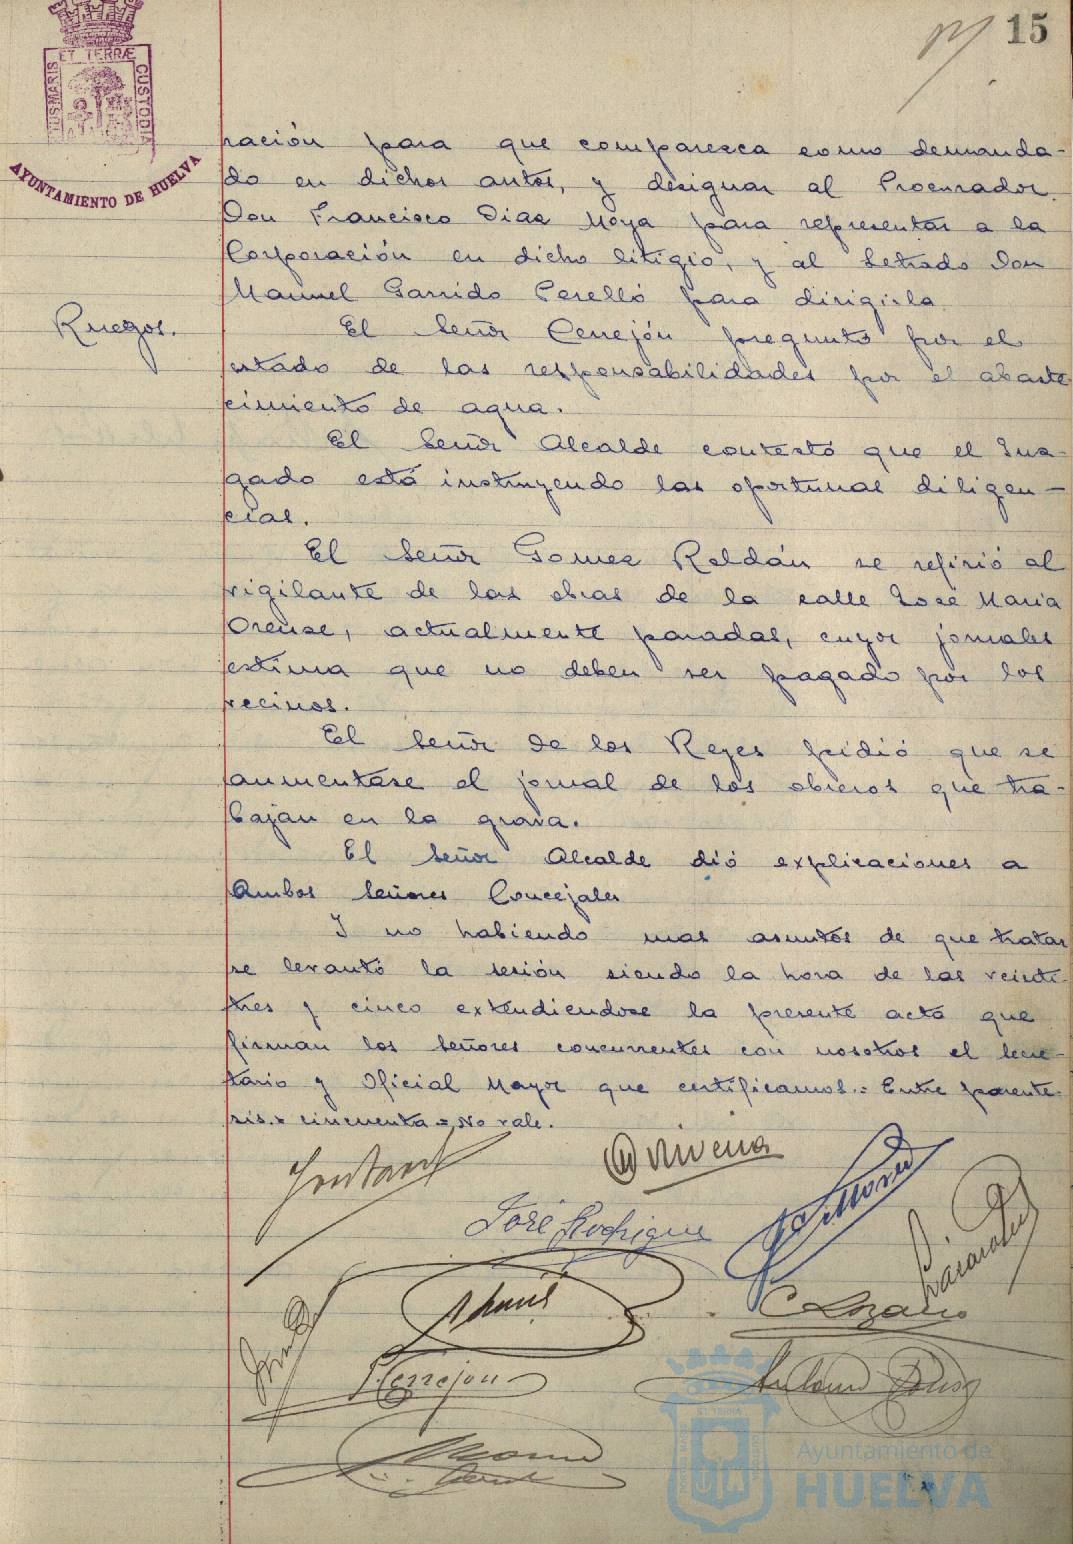 15
ET TERRÆ
CUSTODIA
AYUNTAMIENTO DE HUELVA
ración para que comparezca como demanda-
do en dichos autos, y designar al Procurador
Don Francisco Diaz Moya para representar a la
Corporación en dicho litigio, y al Letrado Don
Manuel Garrido Perelló para dirigirla
Ruegos.
El Señor Cerrejón pregunto por el
estado de las responsabilidades por el abaste
cimiento de agua.
El Señor Alcalde contestó que el Juz-
gado está instruyendo las oportunas diligen-
cias.
El Señor Gomez Roldán se refirió al
vigilante de las obras de la calle José Maria
Orense, actualmente paradas, cuyos jornales
estima que no deben ser pagado por los
vecinos.
El Señor de los Reyes pidió que se
aumentase el jornal de los obreros que tra-
bajan en la grava.
El Señor Alcalde dió explicaciones a
Ambos Señores Concejales
Y no habiendo mas asuntos de que tratar
se levantó la sesión siendo la hora de las veinti-
tres y cinco extendiendose la presente acta que
firman los señores concurrentes con nosotros el Secre-
tario y Oficial Mayor que certificamos.: Entre parente-
sis.= cincuenta = No vale.
José Rodrigue
C Lozano
Cerrejon
Antonio
Ayuntamiento de
HUELVA